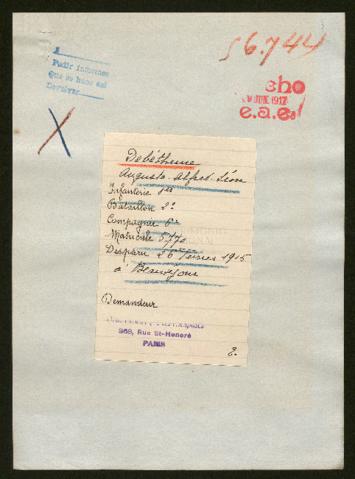 56.744
1
Pedir informes
Que se hace del
Dernier
cho
JUIN 1917
e.a.e.
Debéthune
Auguste Alfred Léon
Infanterie 1er
Bataillon 2e
Compagnie 6e
Matricule 5770
Disparu 26 Février 1915
à Beauséjour
Demandeur
368, Rue St-Honoré
PARIS
2.